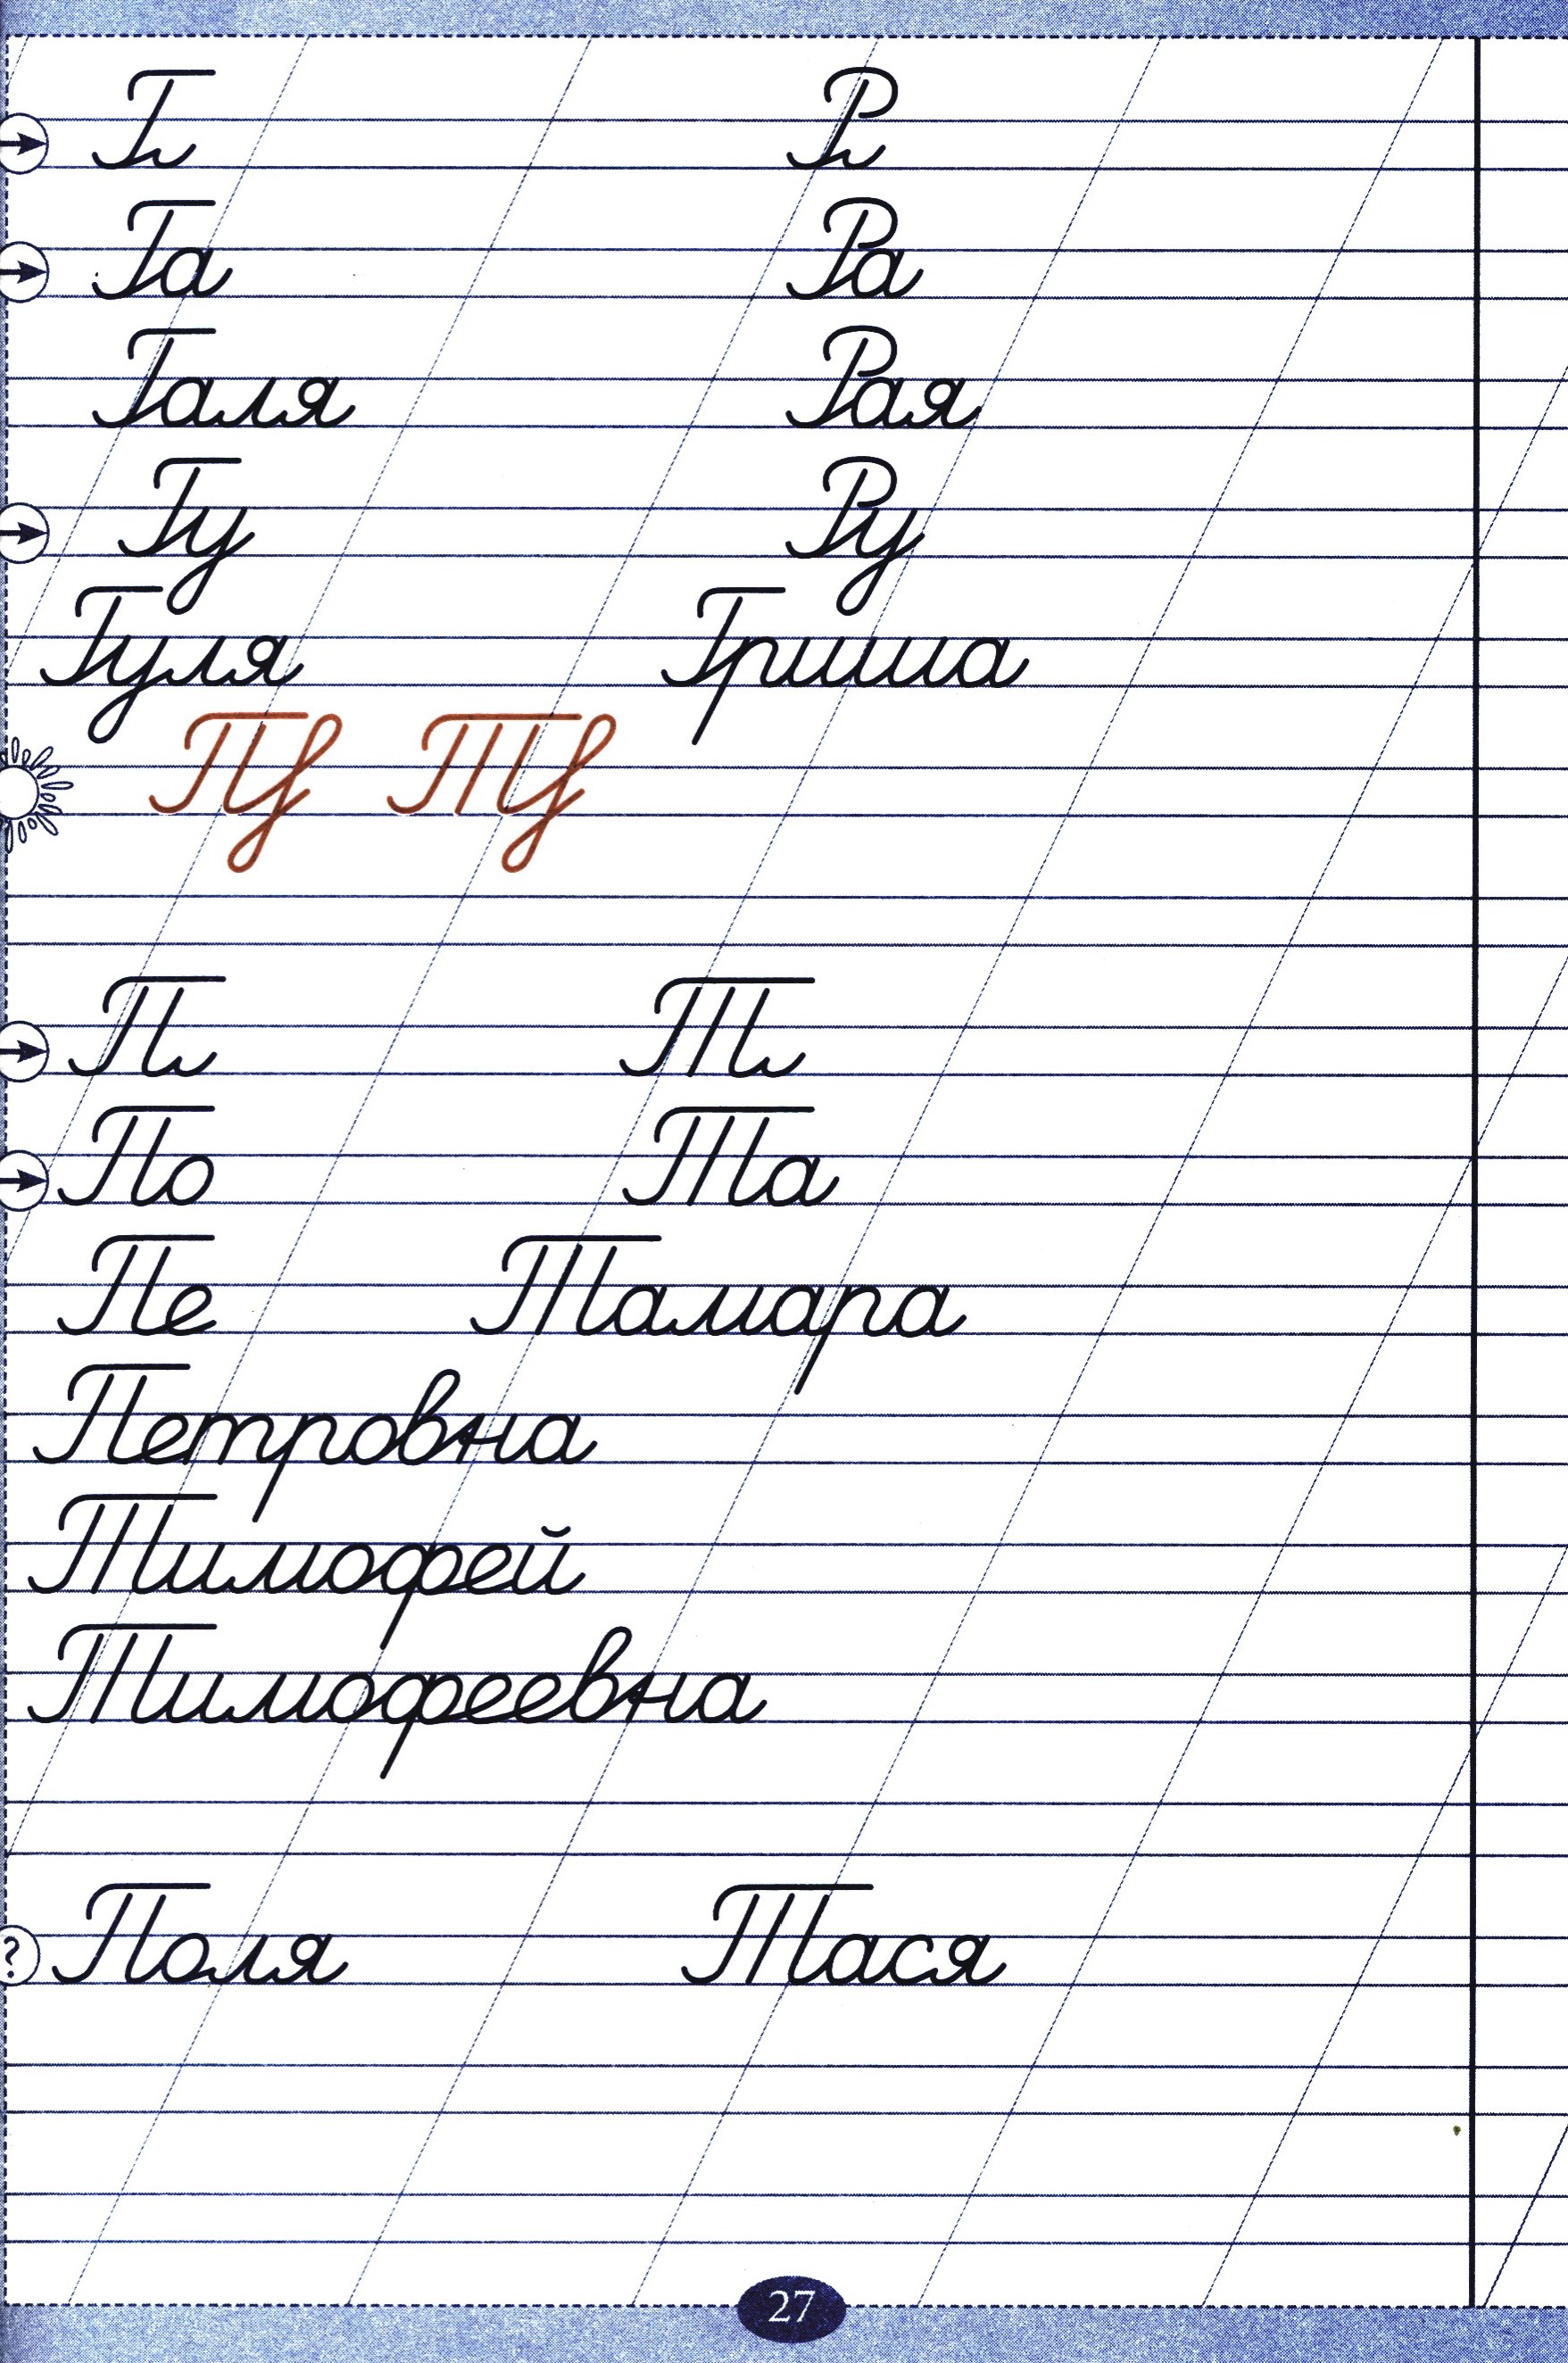 Г Р
Га Ра
Галя Рая
Гу Ру
Гуля Гриша
П Т
По Та
Пе Тамара
Петровна
Тимофей
Тимофеевна
? Поля Тася
27